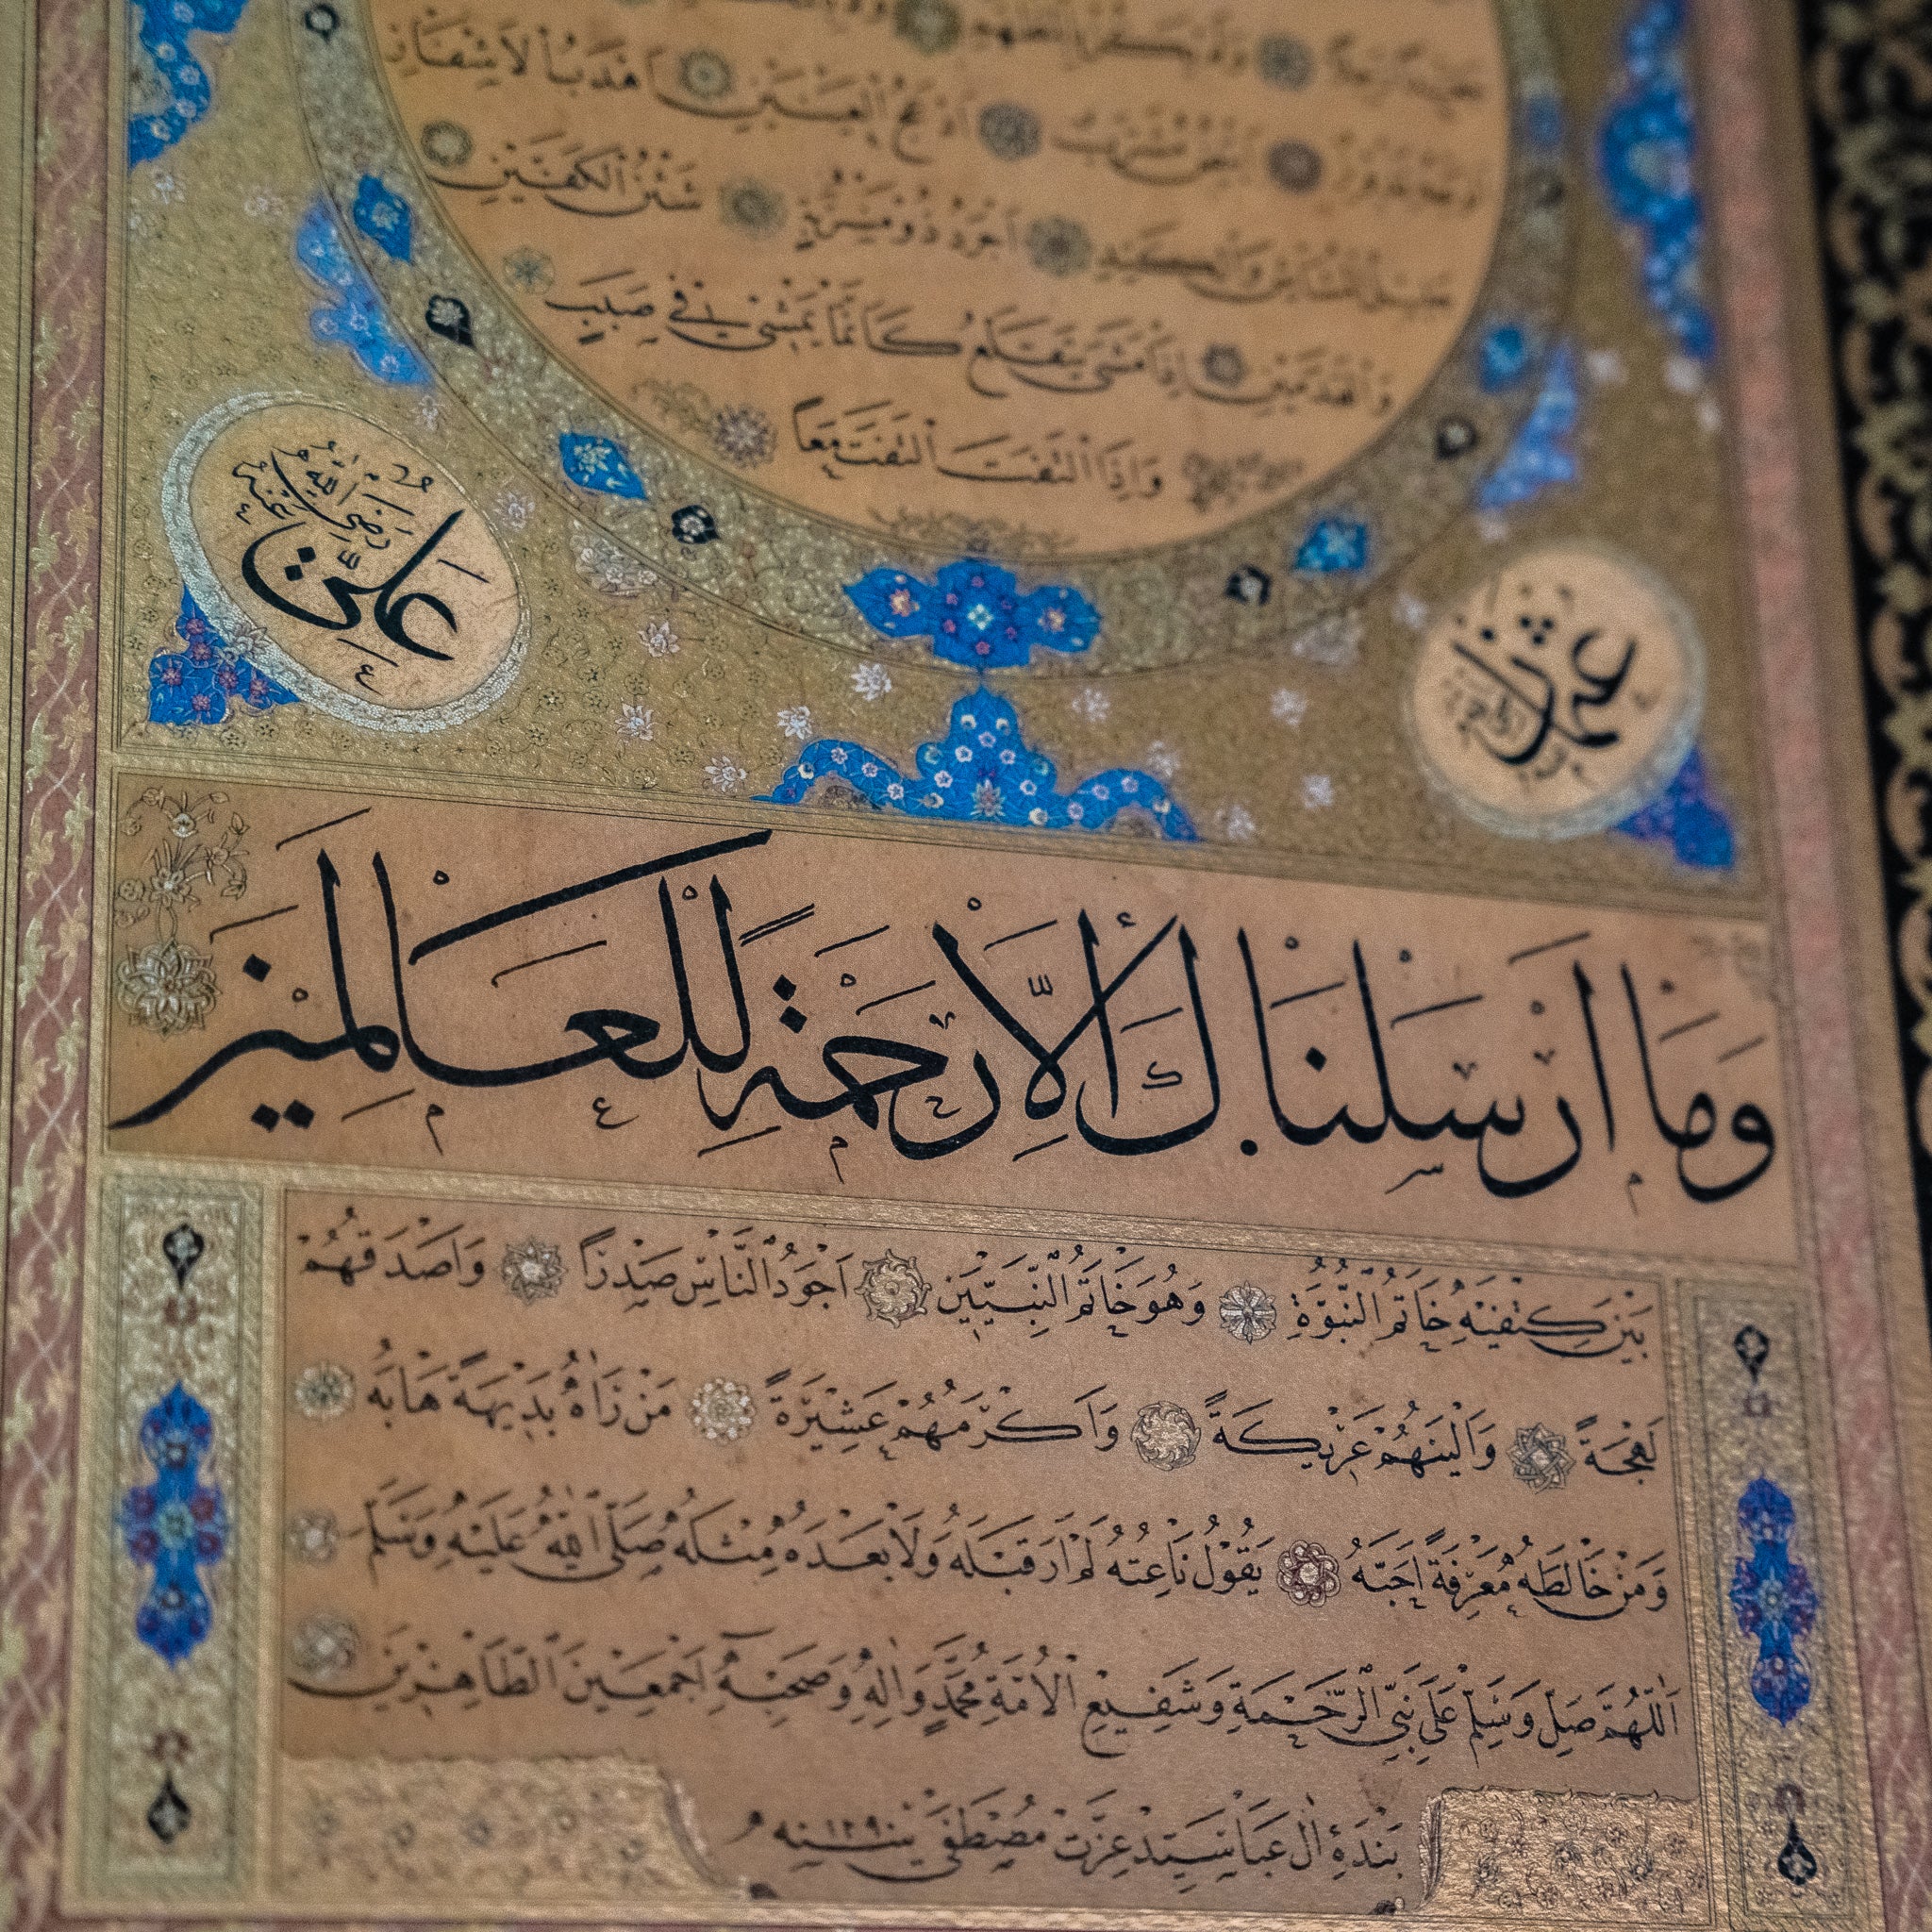 اَدْعَجُ الْعَيْنَيْنِ اَهْدَبُ الْاَشْفَارِ
جَلِيلُ الْمُشَاشِ وَالْكَتَدِ اَجْرَدُ ذُو مَسْرُبَةٍ شَثْنُ الْكَفَّيْنِ
وَالْقَدَمَيْنِ اِذَا مَشٰى يَتَقَلَّعُ كَاَنَّمَا يَمْشِي فِي صَبَبٍ
وَاِذَا الْتَفَتَ الْتَفَتَ مَعًا
عُثْمَانُ
عَلِيٌّ رَضِيَ اللّٰهُ عَنْهُ
وَمَا اَرْسَلْنَاكَ اِلَّا رَحْمَةً لِلْعَالَمِينَ
بَيْنَ كَتِفَيْهِ خَاتَمُ النُّبُوَّةِ وَهُوَ خَاتَمُ النَّبِيِّينَ اَجْوَدُ النَّاسِ صَدْرًا وَاَصْدَقُهُمْ
لَهْجَةً وَاَلْيَنُهُمْ عَرِيكَةً وَاَكْرَمُهُمْ عَشِيرَةً مَنْ رَاٰهُ بَدِيهَةً هَابَهُ
وَمَنْ خَالَطَهُ مَعْرِفَةً اَحَبَّهُ يَقُولُ نَاعِتُهُ لَمْ اَرَ قَبْلَهُ وَلَا بَعْدَهُ مِثْلَهُ صَلَّى اللّٰهُ عَلَيْهِ وَسَلَّمَ
اَللّٰهُمَّ صَلِّ وَسَلِّمْ عَلٰى نَبِيِّ الرَّحْمَةِ وَشَفِيعِ الْاُمَّةِ مُحَمَّدٍ وَاٰلِهِ وَصَحْبِهِ اَجْمَعِينَ الطَّاهِرِينَ
بَنْدَهٔ اٰل عَبَا سَيِّدْ عِزَّتْ مُصْطَفٰى سنه ١٢٩٠